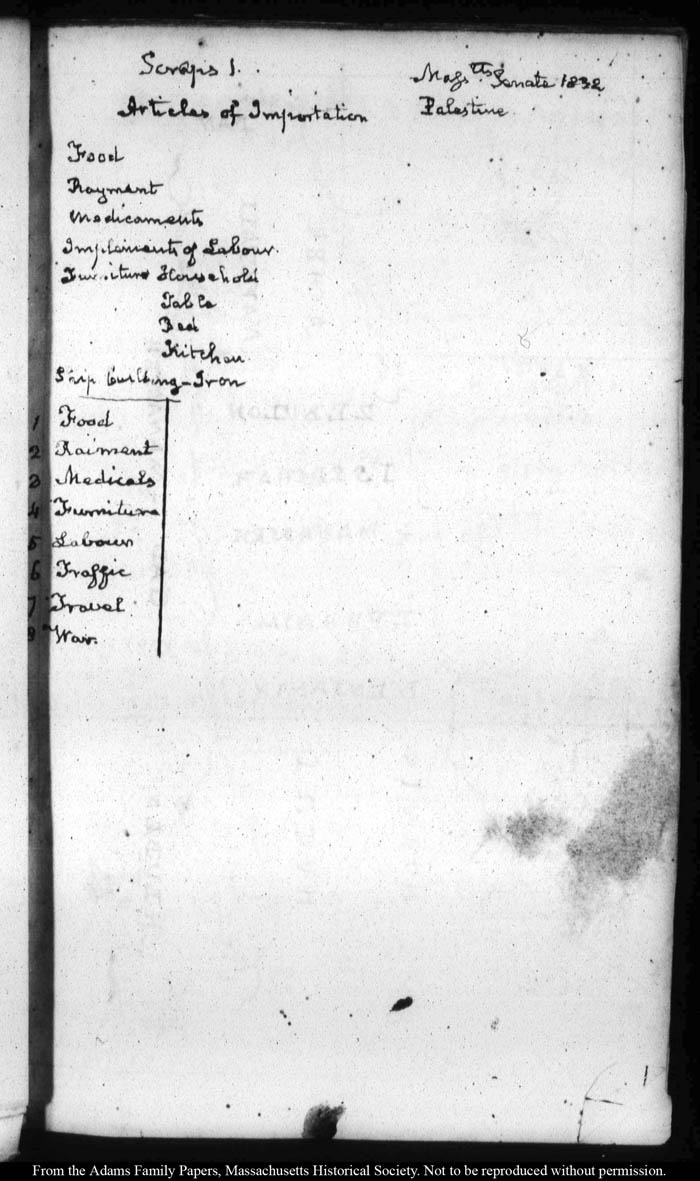 Scraps 1.
Mass.tts Senate 1832
Articles of Importation
Palestine.
Food
Rayment
Medicaments
Implements of Labour.
Furniture Household
Table
Bed
Kitchen.
Ship building - Iron
1 Food
2 Raiment
3 Medicals
4 Furniture
5 Labour
6 Traffic
7 Travel
8 War.
1
From the Adams Family Papers, Massachusetts Historical Society. Not to be reproduced without permission.